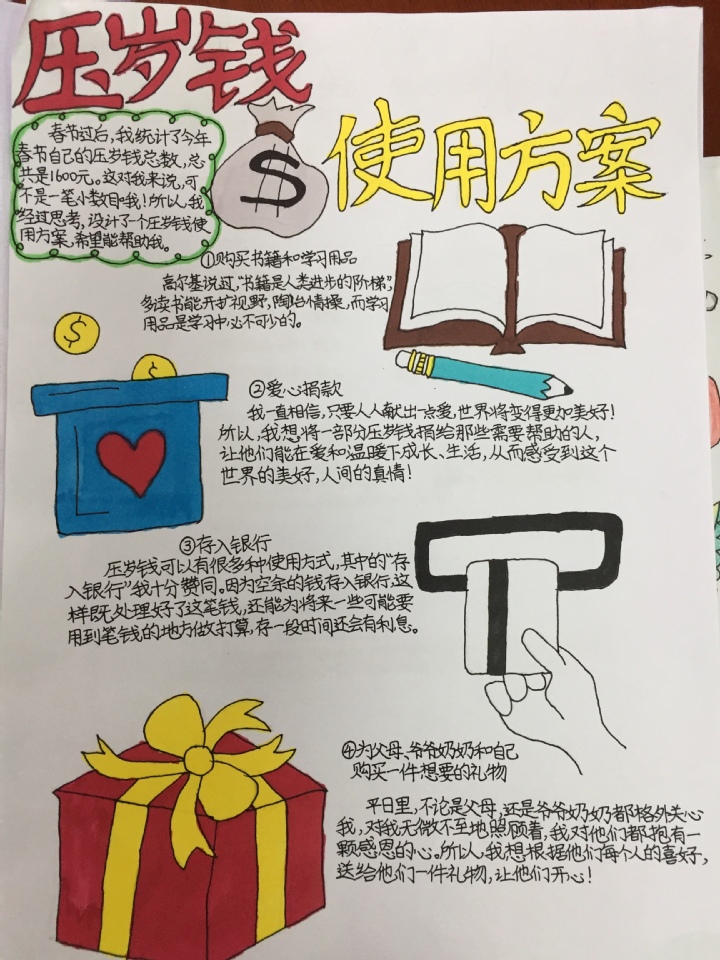 压岁钱
使用方案
春节过后,我统计了今年
春节自己的压岁钱总数,总
共是1600元。这对我来说,可
不是一笔小数目哦!所以,我
经过思考,设计了一个压岁钱使
用方案,希望能帮助我。
$
①购买书籍和学习用品
高尔基说过,“书籍是人类进步的阶梯”,
多读书能开扩视野,陶冶情操,而学习
用品是学习中必不可少的。
$
$
②爱心捐款
我一直相信,只要人人献出一点爱,世界将变得更加美好!
所以,我想将一部分压岁钱捐给那些需要帮助的人,
让他们能在爱和温暖下成长、生活,从而感受到这个
世界的美好,人间的真情!
③存入银行
压岁钱可以有很多种使用方式,其中的“存
入银行”我十分赞同。因为空余的钱存入银行,这
样既处理好了这笔钱,还能为将来一些可能要
用到笔钱的地方做打算,存一段时间还会有利息。
④为父母、爷爷奶奶和自己
购买一件想要的礼物
平日里,不论是父母,还是爷爷奶奶都格外关心
我,对我无微不至地照顾着,我对他们都抱有一
颗感恩的心。所以,我想根据他们每个人的喜好,
送给他们一件礼物,让他们开心!